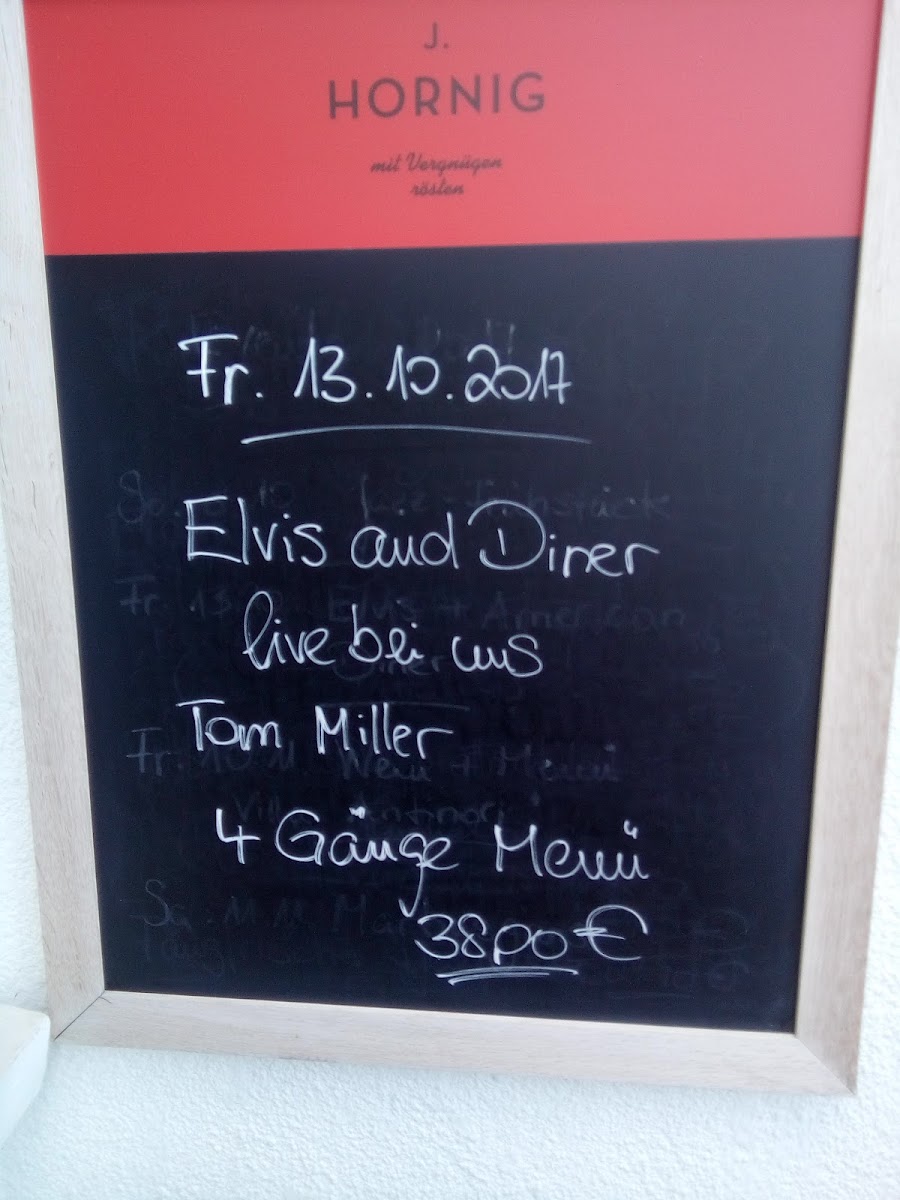 J.
HORNIG
mit Vergnügen
rösten
Fr. 13.10.2017
Elvis and Diner
live bei uns
Tom Miller
4 Gänge Menü
38,00 €